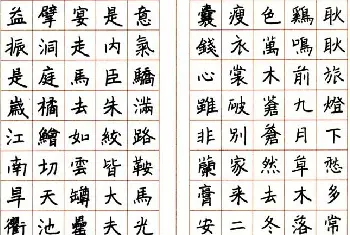 耿耿旅燈下愁多常
鷄鳴前九月草木落
色萬木蒼蒼然去冬
瘦衣裳破別家來二
囊錢心雖非蘭膏安
意氣驕滿路鞍馬光
是內臣朱紱皆大夫
宴走馬去如雲罇罍
擘洞庭橘鱠切天池
益振是歲江南旱衢